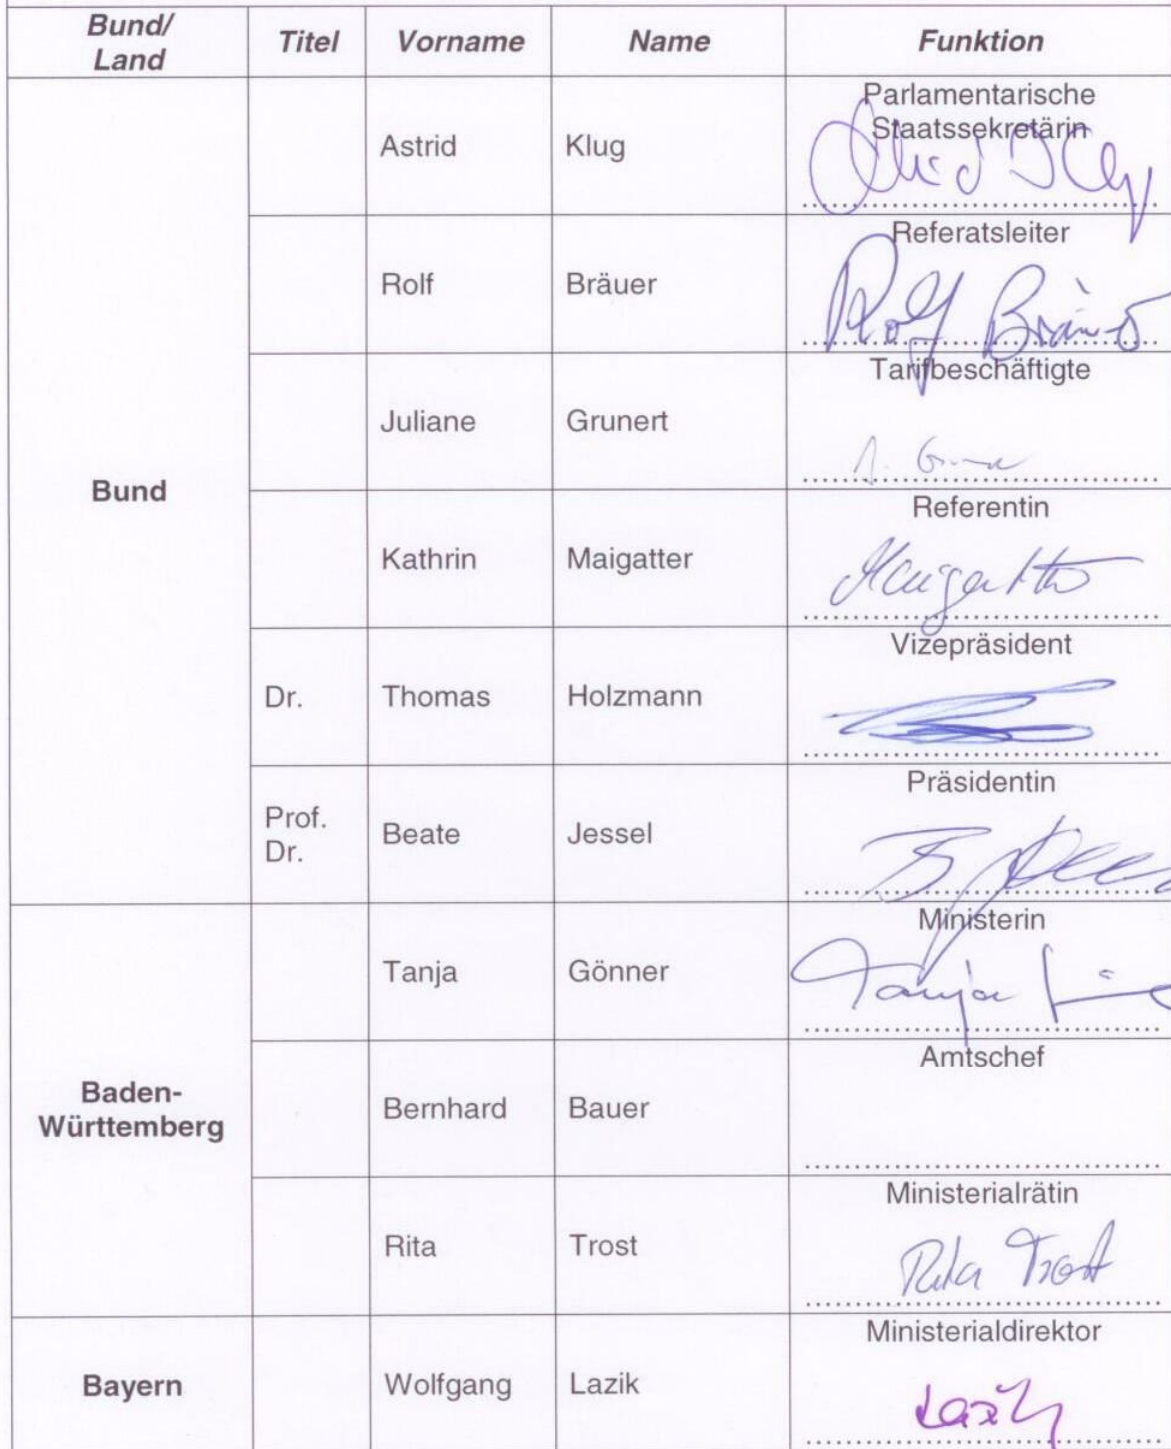 Bund/ Land Titel Vorname Name Funktion
Bund
Astrid Klug Parlamentarische Staatssekretärin
Rolf Bräuer Referatsleiter
Rolf Bräuer
Juliane Grunert Tarifbeschäftigte
Kathrin Maigatter Referentin
Maigatter
Dr. Thomas Holzmann Vizepräsident
Prof. Dr. Beate Jessel Präsidentin
Baden-Württemberg
Tanja Gönner Ministerin
Tanja
Bernhard Bauer Amtschef
Rita Trost Ministerialrätin
Rita Trost
Bayern
Wolfgang Lazik Ministerialdirektor
Lazik